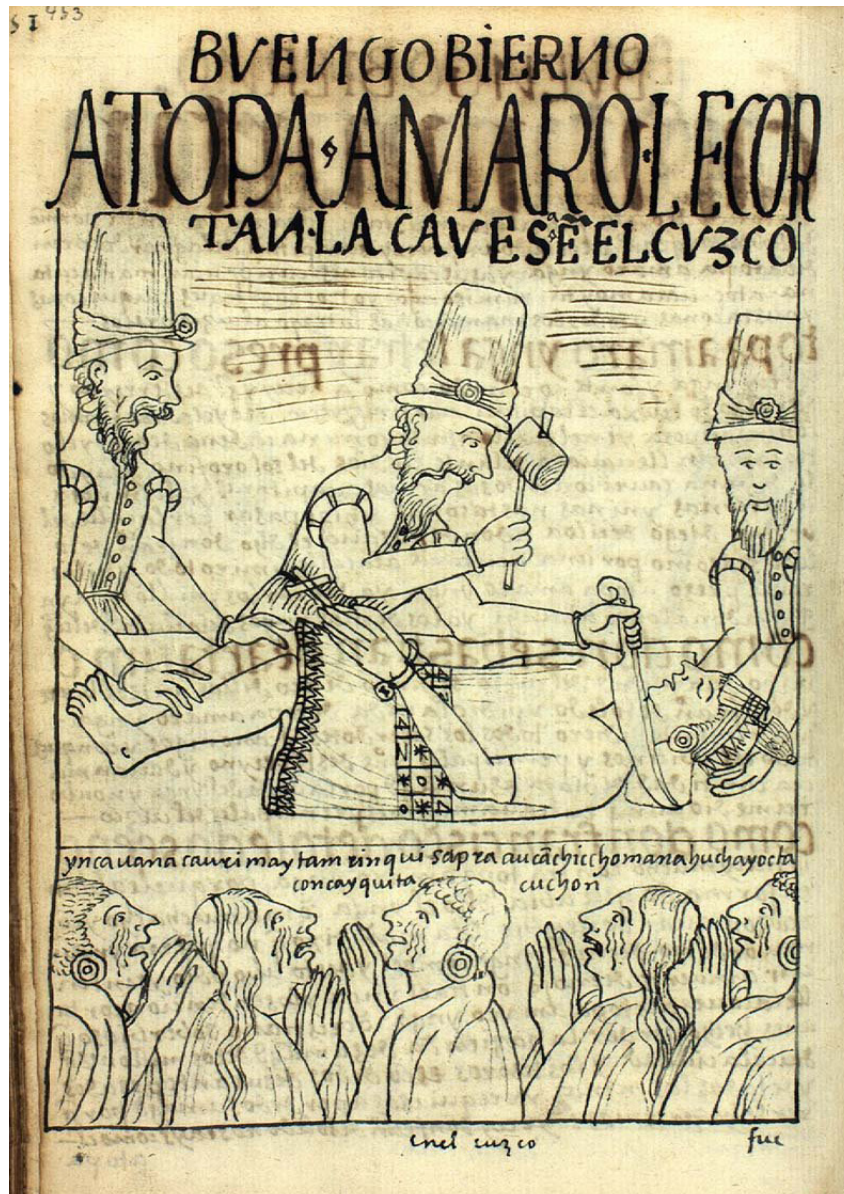 51 453
BVEN GOBiERNO
A TOPA AMARO·LE COR
TAN·LA CAVESA·Ē EL CVZCO
ynca uana cauri maytam rinqui sapra aucãchiccho mana huchayocta
concayquita cuchon
en el cuzco
fue